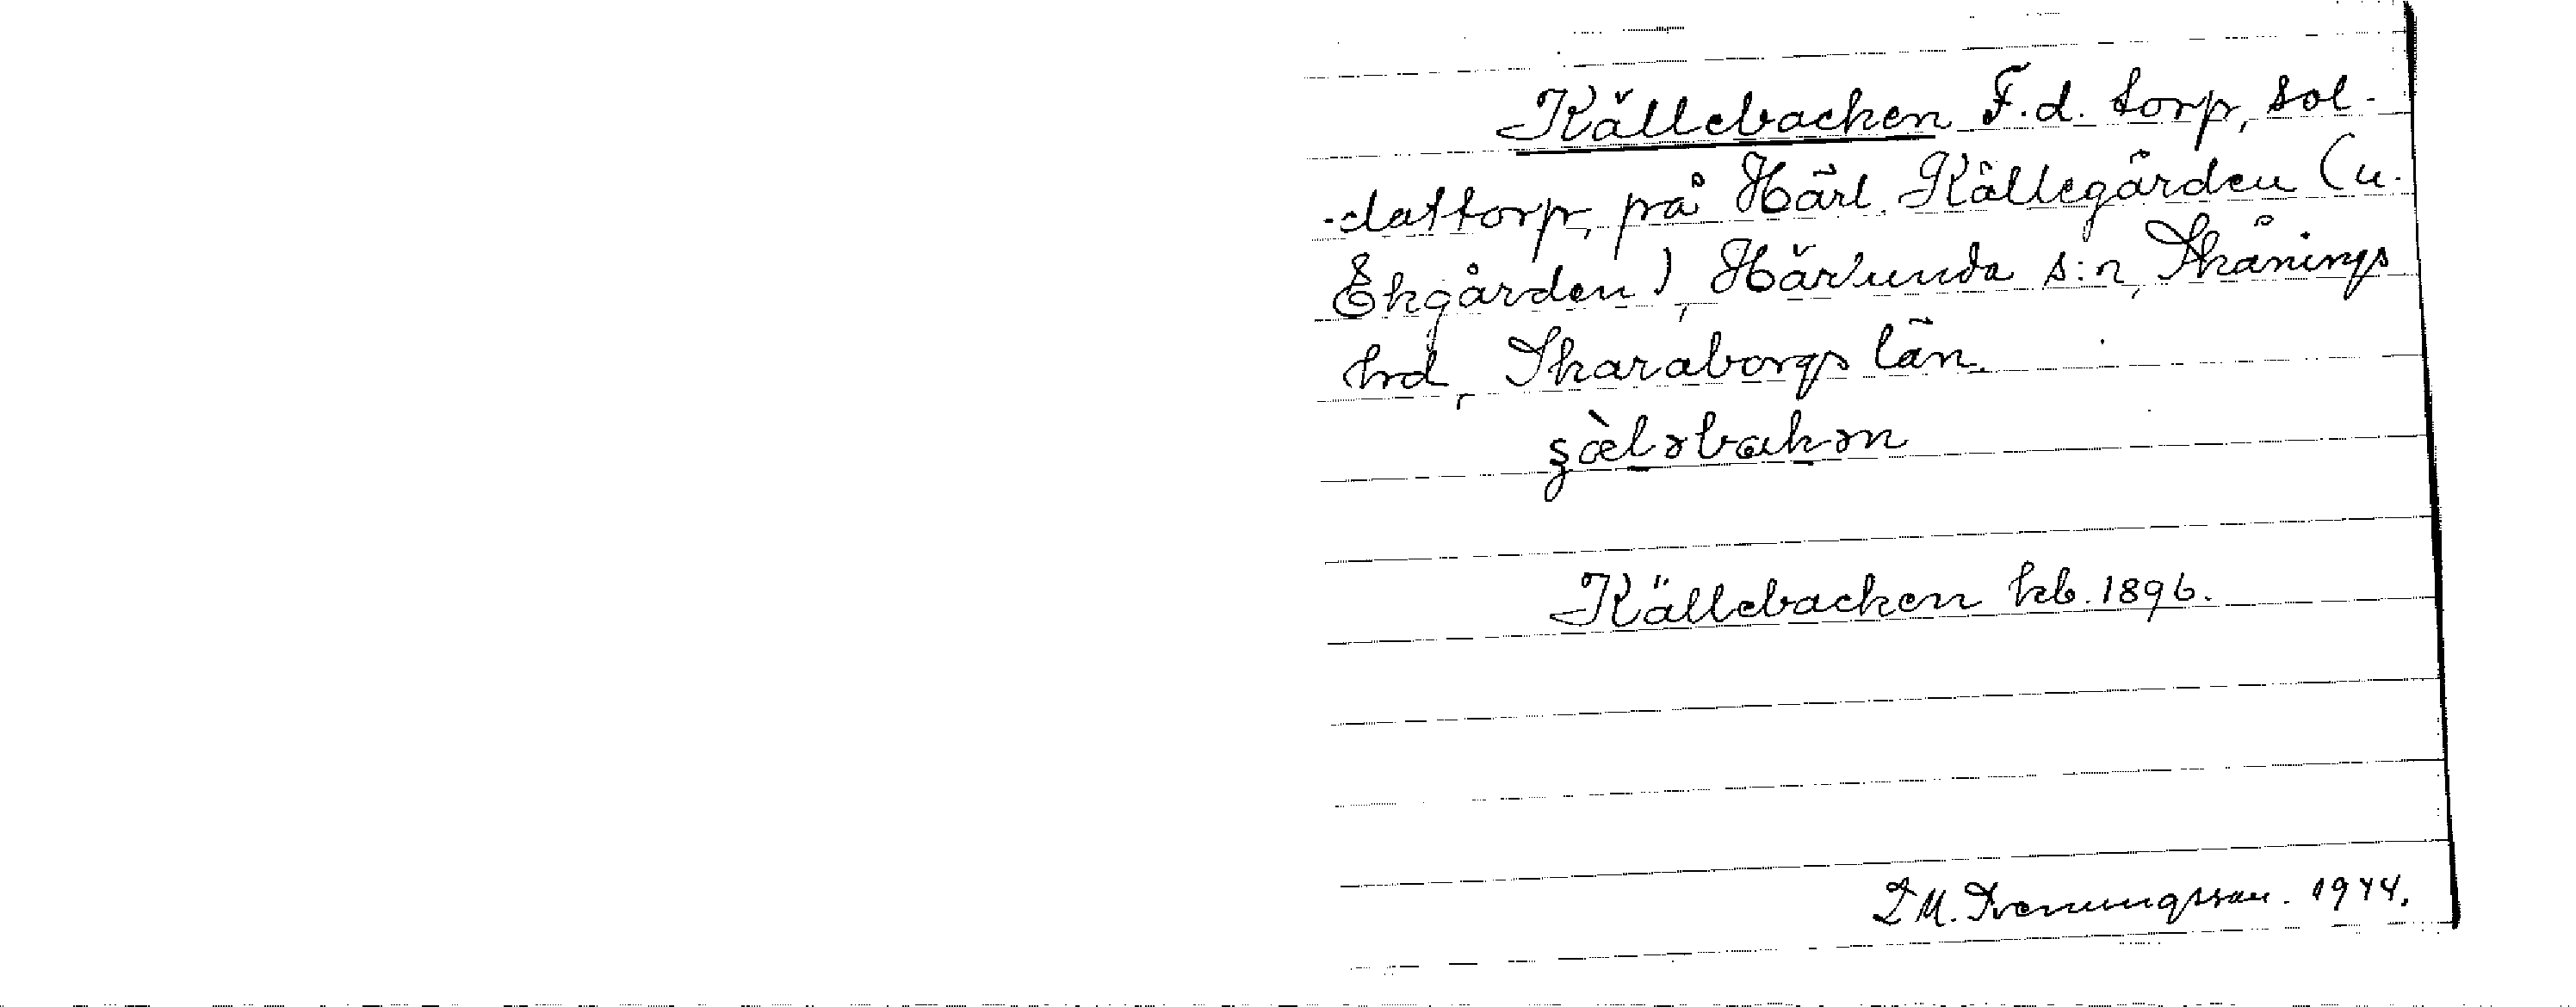 Källebacken F.d. torp, sol-
-dattorp, på Härl. Källegården (u.
Ekgården), Härlunda s:n, Skånings
hrd, Skaraborgs län.
şæ̀ləbakən
Källebacken kb. 1896.
M. Svenungsson. 1944.